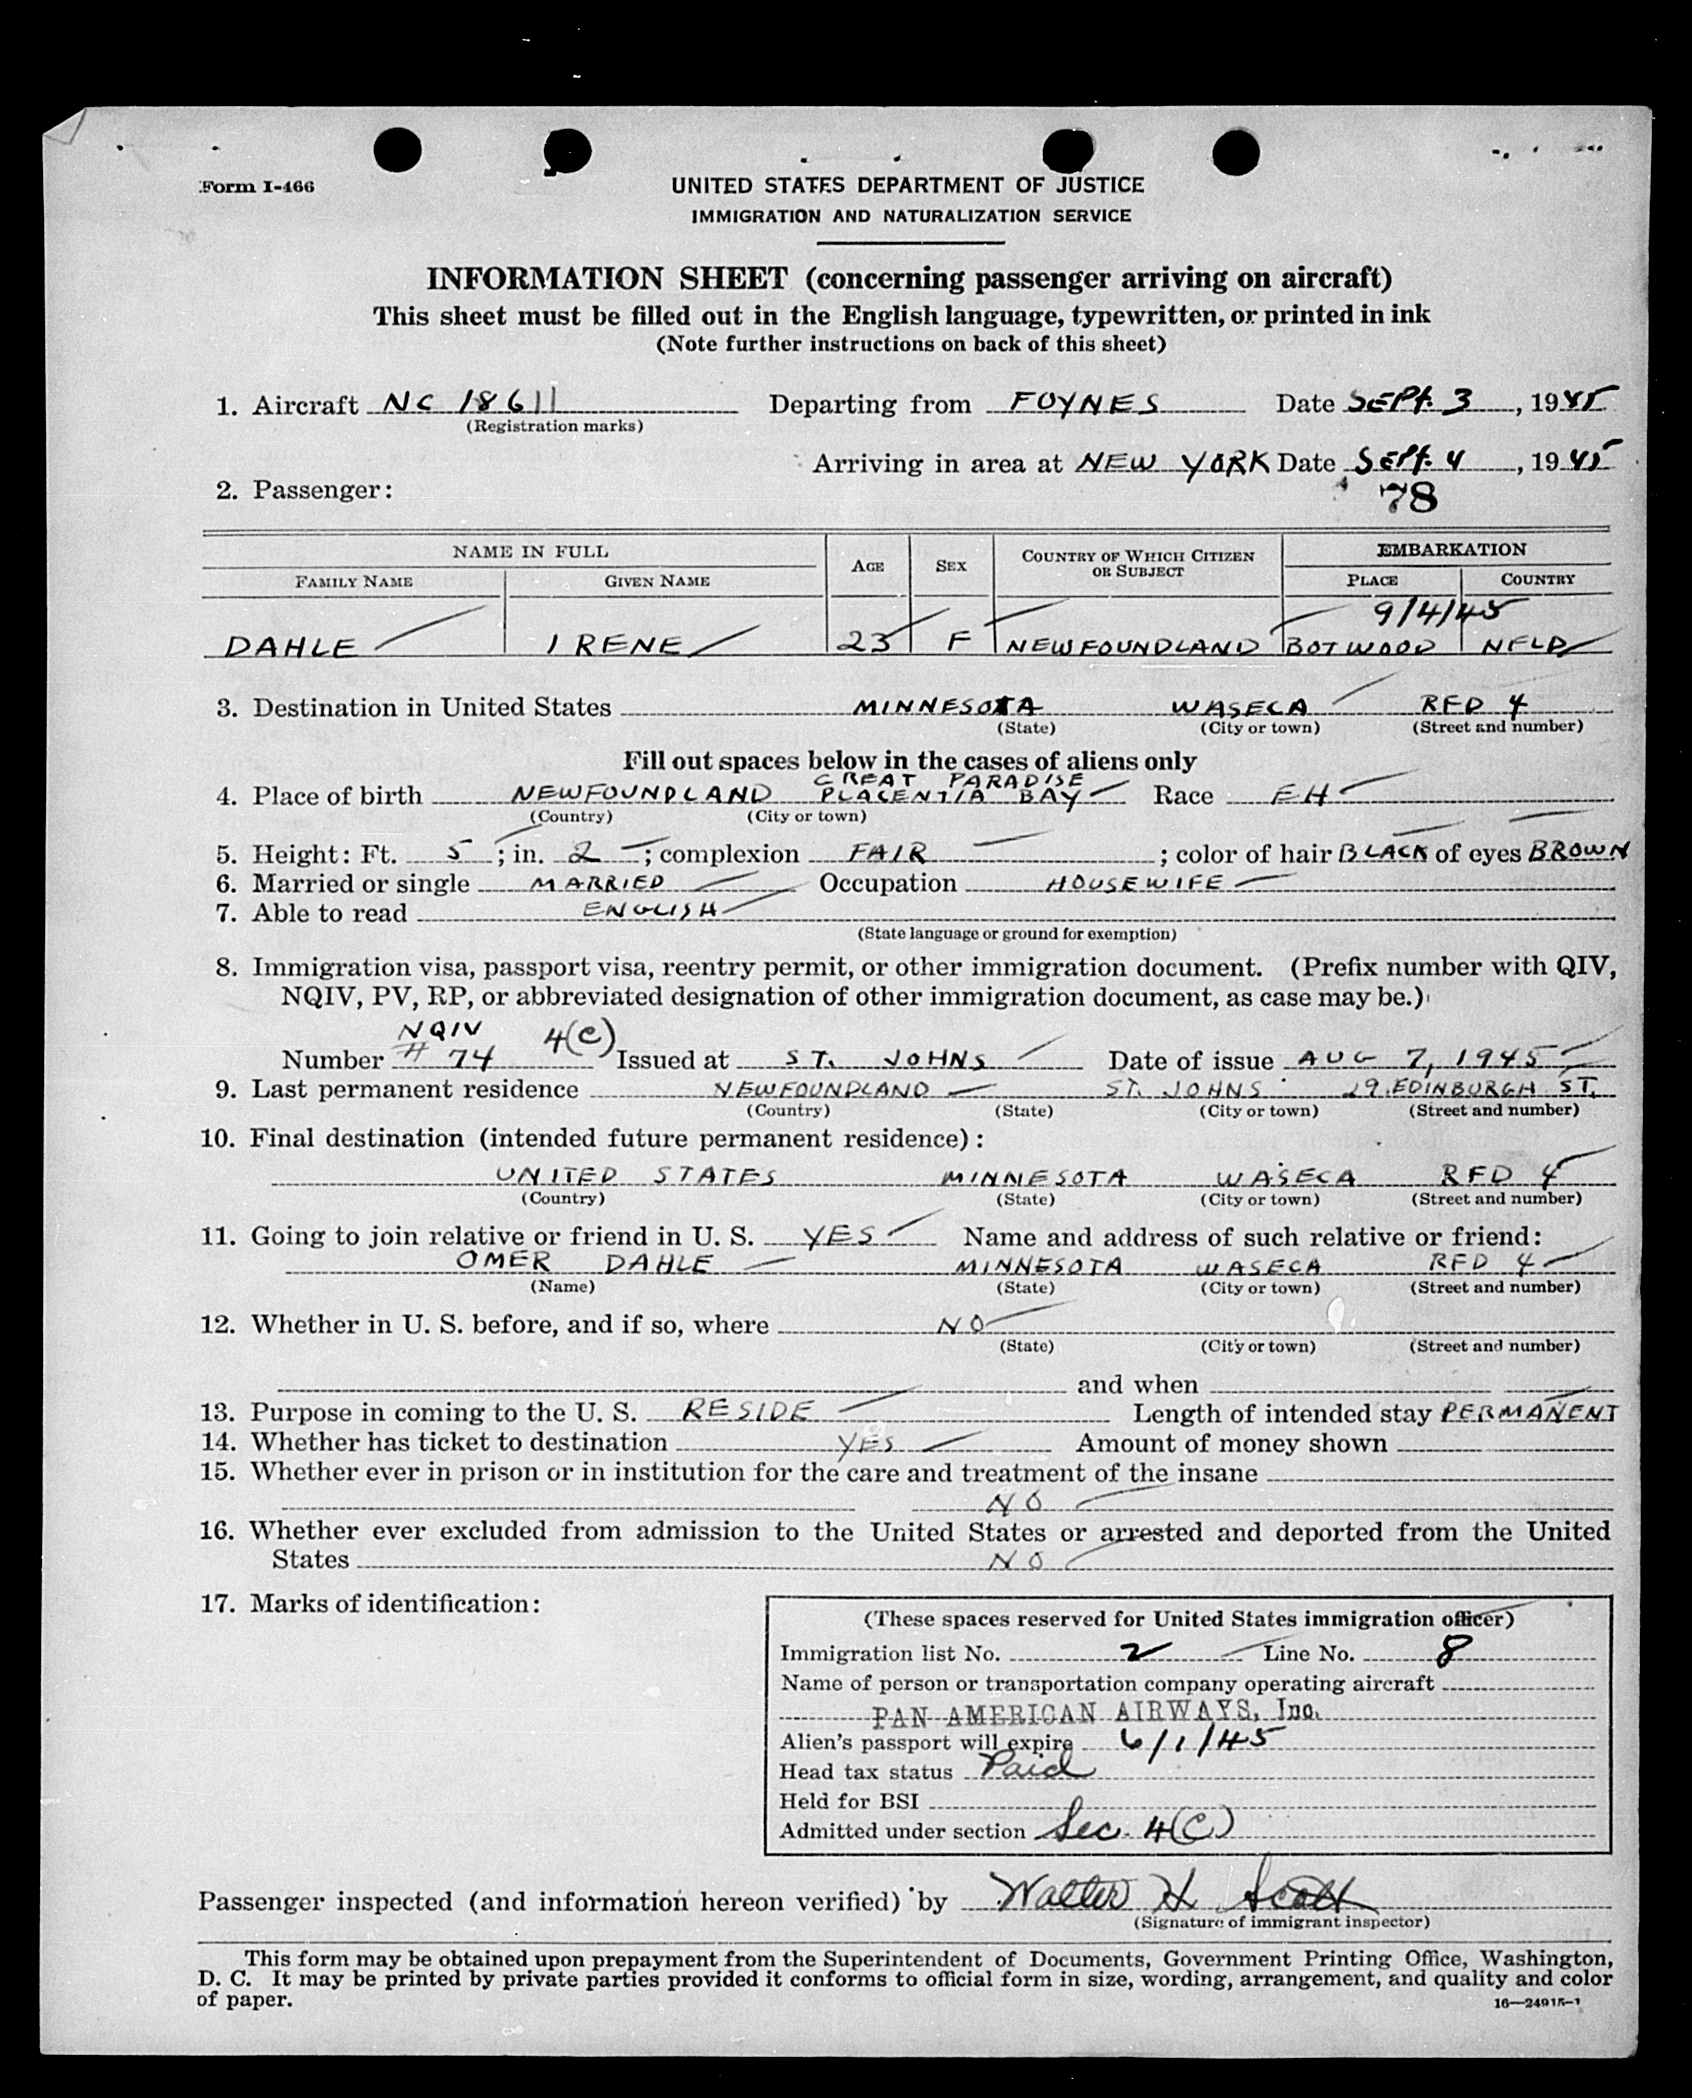 Form I-466
UNITED STATES DEPARTMENT OF JUSTICE
IMMIGRATION AND NATURALIZATION SERVICE
INFORMATION SHEET (concerning passenger arriving on aircraft)
This sheet must be filled out in the English language, typewritten, or printed in ink
(Note further instructions on back of this sheet)
1. Aircraft NC 18611 Departing from FOYNES Date SEPT. 3, 1945
(Registration marks)
Arriving in area at NEW YORK Date SEPT. 4, 1945
2. Passenger: 78
NAME IN FULL COUNTRY OF WHICH CITIZEN EMBARKATION
AGE SEX OR SUBJECT
FAMILY NAME GIVEN NAME PLACE COUNTRY
9/4/45
DAHLE IRENE 23 F NEWFOUNDLAND BOTWOOD NFLD
3. Destination in United States MINNESOTA WASECA RFD 4
(State) (City or town) (Street and number)
Fill out spaces below in the cases of aliens only
GREAT PARADISE
4. Place of birth NEWFOUNDLAND PLACENTIA BAY Race EH
(Country) (City or town)
5. Height: Ft. 5; in. 2; complexion FAIR; color of hair BLACK of eyes BROWN
6. Married or single MARRIED Occupation HOUSEWIFE
7. Able to read ENGLISH
(State language or ground for exemption)
8. Immigration visa, passport visa, reentry permit, or other immigration document. (Prefix number with QIV,
NQIV, PV, RP, or abbreviated designation of other immigration document, as case may be.)
NQIV 4(C)
Number # 74 Issued at ST. JOHNS Date of issue AUG 7, 1945
9. Last permanent residence NEWFOUNDLAND ST. JOHNS 29 EDINBURGH ST.
(Country) (State) (City or town) (Street and number)
10. Final destination (intended future permanent residence):
UNITED STATES MINNESOTA WASECA RFD 4
(Country) (State) (City or town) (Street and number)
11. Going to join relative or friend in U. S. YES Name and address of such relative or friend:
OMER DAHLE MINNESOTA WASECA RFD 4
(Name) (State) (City or town) (Street and number)
12. Whether in U. S. before, and if so, where NO
(State) (City or town) (Street and number)
and when
13. Purpose in coming to the U. S. RESIDE Length of intended stay PERMANENT
14. Whether has ticket to destination YES Amount of money shown
15. Whether ever in prison or in institution for the care and treatment of the insane
NO
16. Whether ever excluded from admission to the United States or arrested and deported from the United
States NO
17. Marks of identification:
(These spaces reserved for United States immigration officer)
Immigration list No. 2 Line No. 8
Name of person or transportation company operating aircraft
PAN AMERICAN AIRWAYS, Inc.
Alien's passport will expire 6/1/45
Head tax status Paid
Held for BSI
Admitted under section Sec. 4(C)
Passenger inspected (and information hereon verified) by Walter H. Scott
(Signature of immigrant inspector)
This form may be obtained upon prepayment from the Superintendent of Documents, Government Printing Office, Washington,
D. C. It may be printed by private parties provided it conforms to official form in size, wording, arrangement, and quality and color
of paper.
16—24915-1